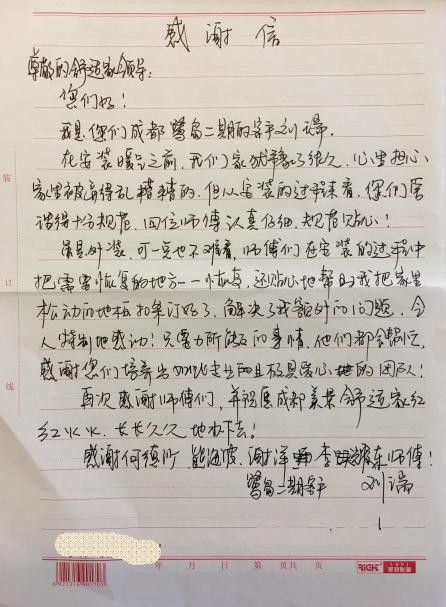 感谢信
尊敬的舒适家领导:
您们好!
我是您们成都鹭岛二期的客户刘瑞。
在安装暖气之前,我们家犹豫了很久,心里担心
家里被弄得乱糟糟的,但从安装的过程来看,你们
得十分规范,四位师傅认真仔细,规范贴心!
虽是外装,可一点也不难看,师傅们在安装的过程中
把需要恢复的地方一一恢复,还贴心地帮我把家里
松动的地板扣条订好了,解决了我额外的问题,令
人特别地感动!只要力所能及的事情,他们都会帮忙,
感谢您们培养出如此专业而且极具爱心的团队!
再次感谢师傅们,并祝愿成都美景舒适家红
红火火,长长久久地办下去!
感谢何德 熊 波、谢洋 李 东师傅!
鹭岛二期客户 刘瑞
装
订
线
年 月 日 第 页共 页
6921316901703